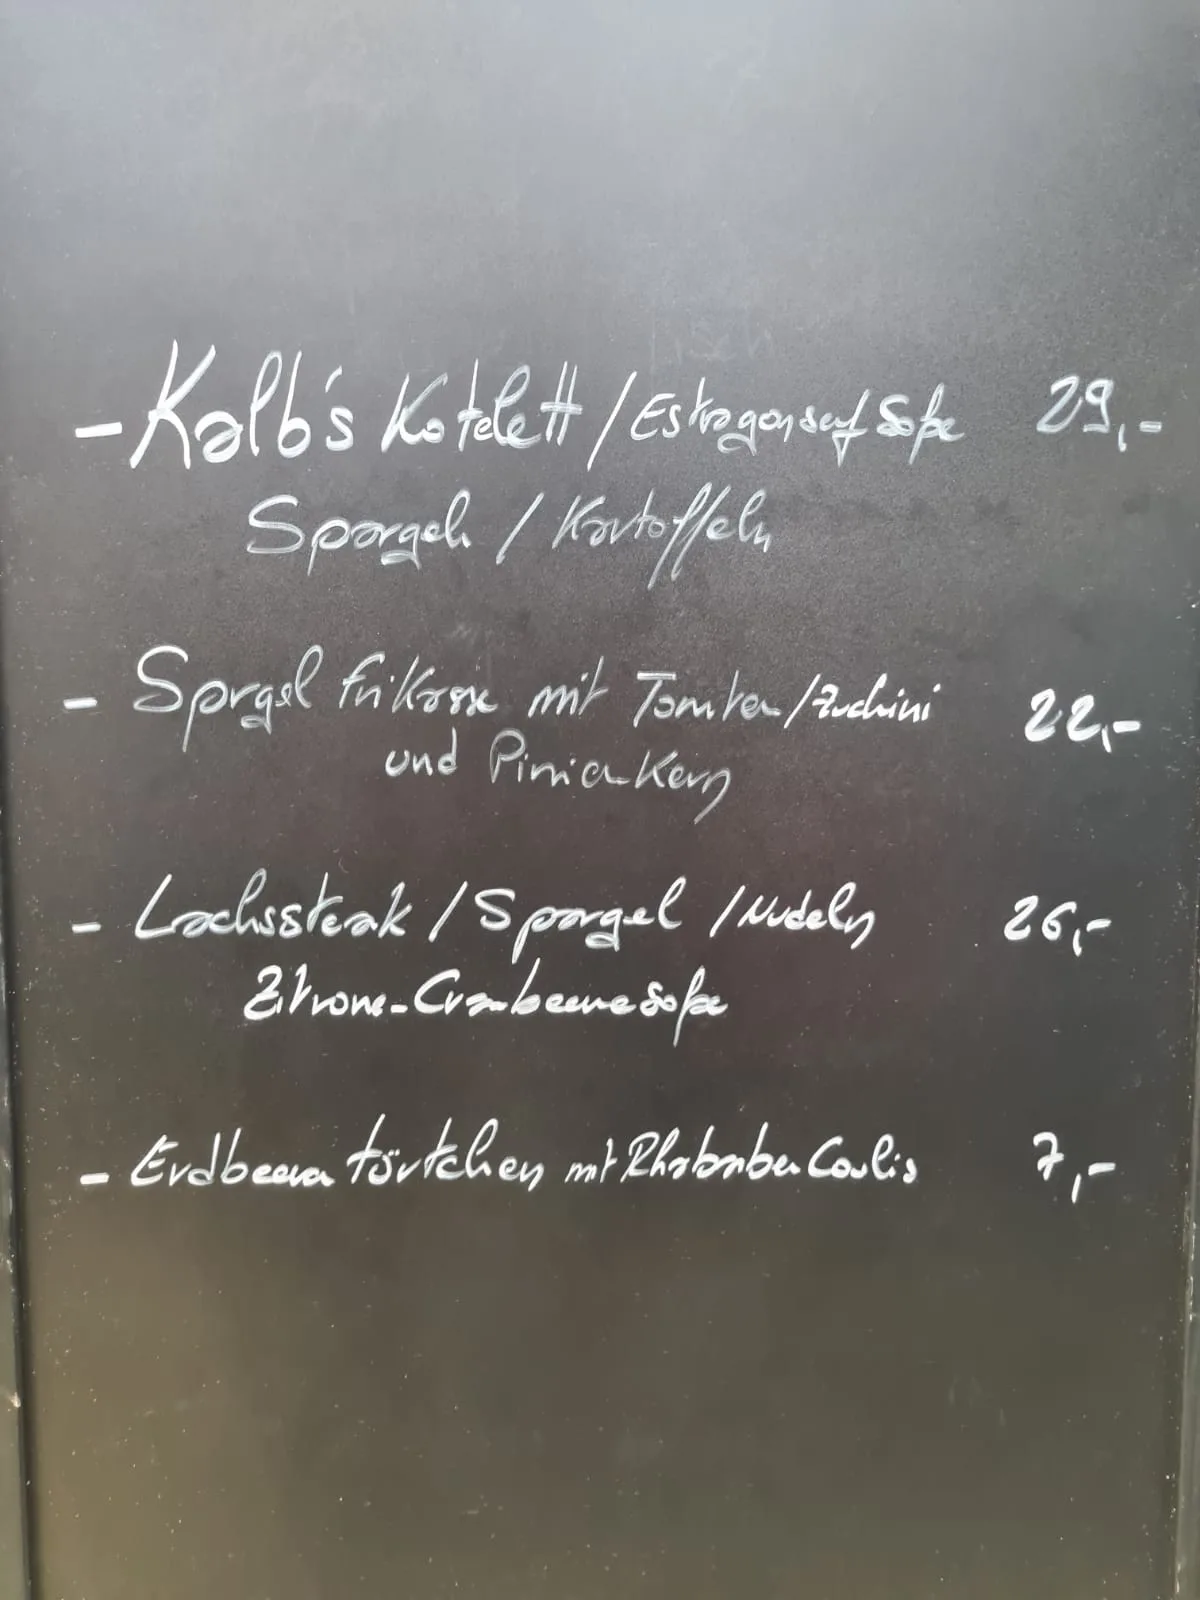 - Kalb's Kotelett / Estragonsenf Soße 29,-
Spargel / Kartoffeln
- Spargel Frikasse mit Tomaten / Zuchini 22,-
und Pinienkern
- Lachssteak / Spargel / Nudeln 26,-
Zitrone-Cranbeere Soße
- Erdbeeren törtchen mit Rhababer Coulis 7,-